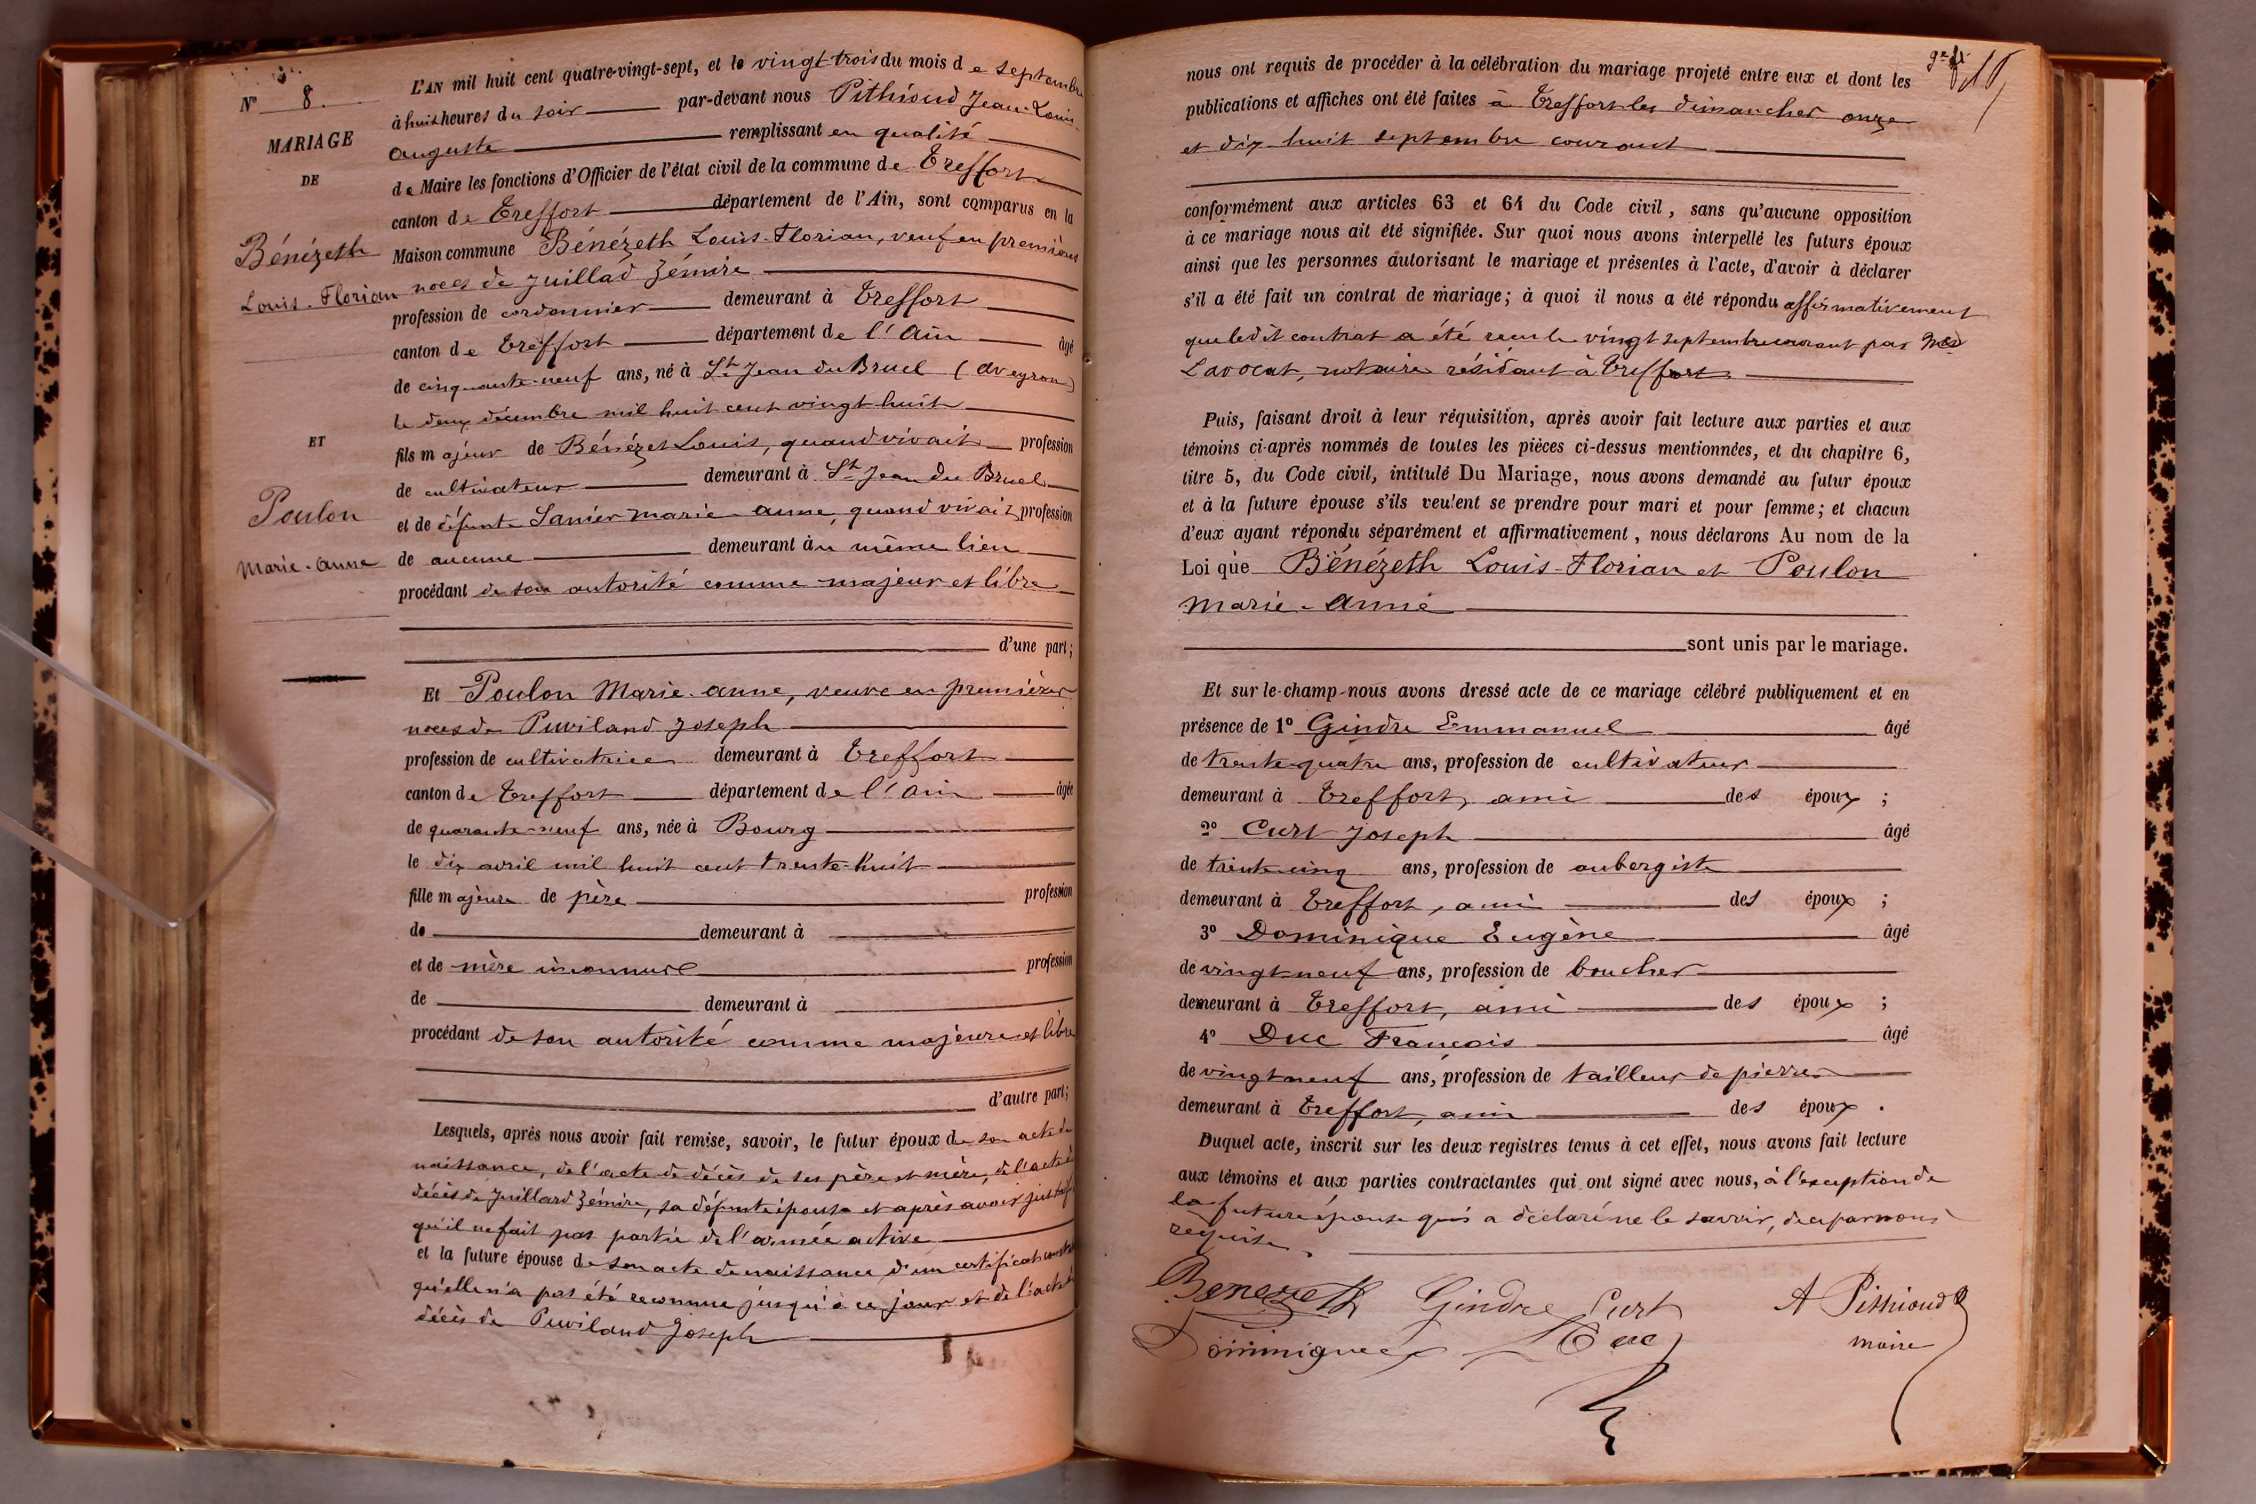 N° 8.
MARIAGE
DE
Bénézeth
Louis-Florian
ET
Poulon
Marie-Anne
L'AN mil huit cent quatre-vingt-sept, et le vingt trois du mois de septembre
à huit heures du soir par-devant nous Pithioud Jean-Louis
auguste remplissant en qualité
de Maire les fonctions d'Officier de l'état civil de la commune de Treffort
canton de Treffort département de l'Ain, sont comparus en la
Maison commune Bénézeth Louis-Florian, veuf en premières
noces de Juillad Zémire
profession de cordonnier demeurant à Treffort
canton de Treffort département de l'Ain âgé
de cinquante-neuf ans, né à St Jean du Bruel (Aveyron)
le deux décembre mil huit cent vingt huit
fils majeur de Bénézet Louis, quand vivait profession
de cultivateur demeurant à St Jean du Bruel
et de défunte Sanier marie-anne, quand vivait profession
de aucune demeurant au même lieu
procédant de son autorité comme majeur et libre
d'une part;
Et Poulon Marie-anne, veuve en premières
noces de Puviland Joseph
profession de cultivatrice demeurant à Treffort
canton de Treffort département de l'ain âgée
de quarante-neuf ans, née à Bourg
le dix avril mil huit cent trente-huit
fille majeure de père profession
de demeurant à
et de mère inconnus profession
de demeurant à
procédant de son autorité comme majeure et libre
d'autre part;
Lesquels, après nous avoir fait remise, savoir, le futur époux de son acte de
naissance, de l'acte de décès de ses père et mère, de l'acte de
décès de Juillard Zémire, sa défunte épouse et après avoir justifié
qu'il ne fait pas partie de l'armée active
et la future épouse de son acte de naissance, d'un certificat constatant
qu'elle n'a pas été reconnue jusqu'à ce jour et de l'acte de
décès de Puviland Joseph
nous ont requis de procéder à la célébration du mariage projeté entre eux et dont les
publications et affiches ont été faites à Treffort les dimanches onze
et dix-huit septembre courant
conformément aux articles 63 et 64 du Code civil, sans qu'aucune opposition
à ce mariage nous ait été signifiée. Sur quoi nous avons interpellé les futurs époux
ainsi que les personnes autorisant le mariage et présentes à l'acte, d'avoir à déclarer
s'il a été fait un contrat de mariage; à quoi il nous a été répondu affirmativement
que ledit contrat a été reçu le vingt septembre courant par
Lavocat, notaire résidant à Treffort
Puis, faisant droit à leur réquisition, après avoir fait lecture aux parties et aux
témoins ci-après nommés de toutes les pièces ci-dessus mentionnées, et du chapitre 6,
titre 5, du Code civil, intitulé Du Mariage, nous avons demandé au futur époux
et à la future épouse s'ils veulent se prendre pour mari et pour femme; et chacun
d'eux ayant répondu séparément et affirmativement, nous déclarons Au nom de la
Loi que Bénézeth Louis-Florian et Poulon
Marie-Anne
sont unis par le mariage.
Et sur le-champ nous avons dressé acte de ce mariage célébré publiquement et en
présence de 1° Gindre Emmanuel âgé
de trente-quatre ans, profession de cultivateur
demeurant à Treffort, ami des époux;
2° Curt Joseph âgé
de trente cinq ans, profession de aubergiste
demeurant à Treffort, ami des époux;
3° Dominique Eugène âgé
de vingt neuf ans, profession de boucher
demeurant à Treffort, ami des époux;
4° Duc François âgé
de vingt neuf ans, profession de tailleur de pierres
demeurant à Treffort, ami des époux.
Duquel acte, inscrit sur les deux registres tenus à cet effet, nous avons fait lecture
aux témoins et aux parties contractantes qui ont signé avec nous, à l'exception de
la future épouse qui a déclaré ne le savoir, de ce par nous
requise.
Benezeth Gindre Curt A Pithioud
Dominique Duc maire